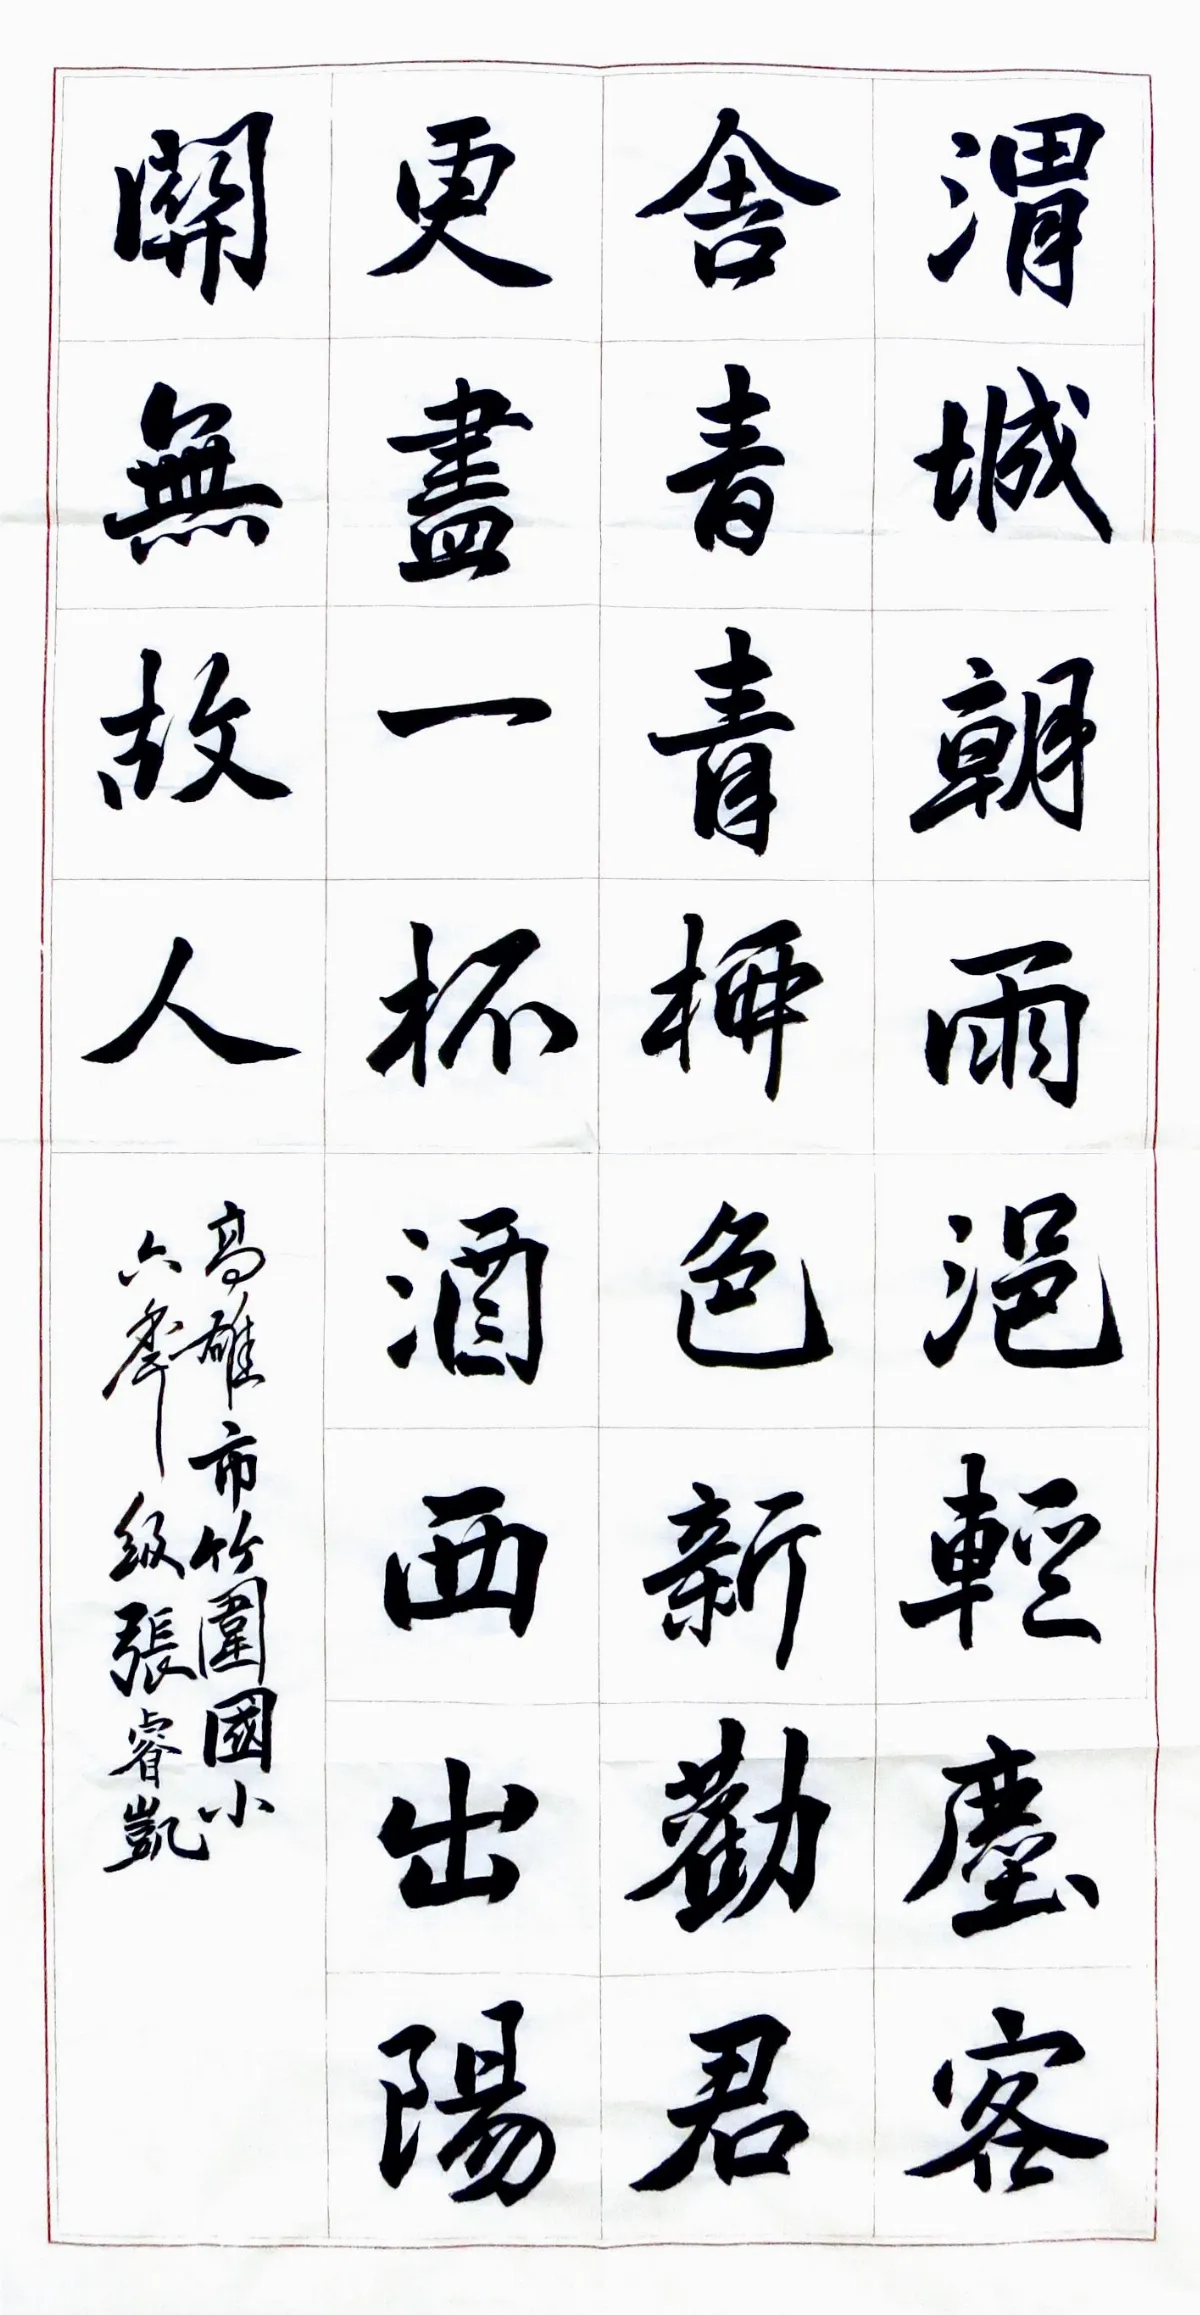 渭城朝雨浥輕塵客
舍青青柳色新勸君
更盡一杯酒西出陽
關無故人
高雄市竹圍國小
六年級張睿凱